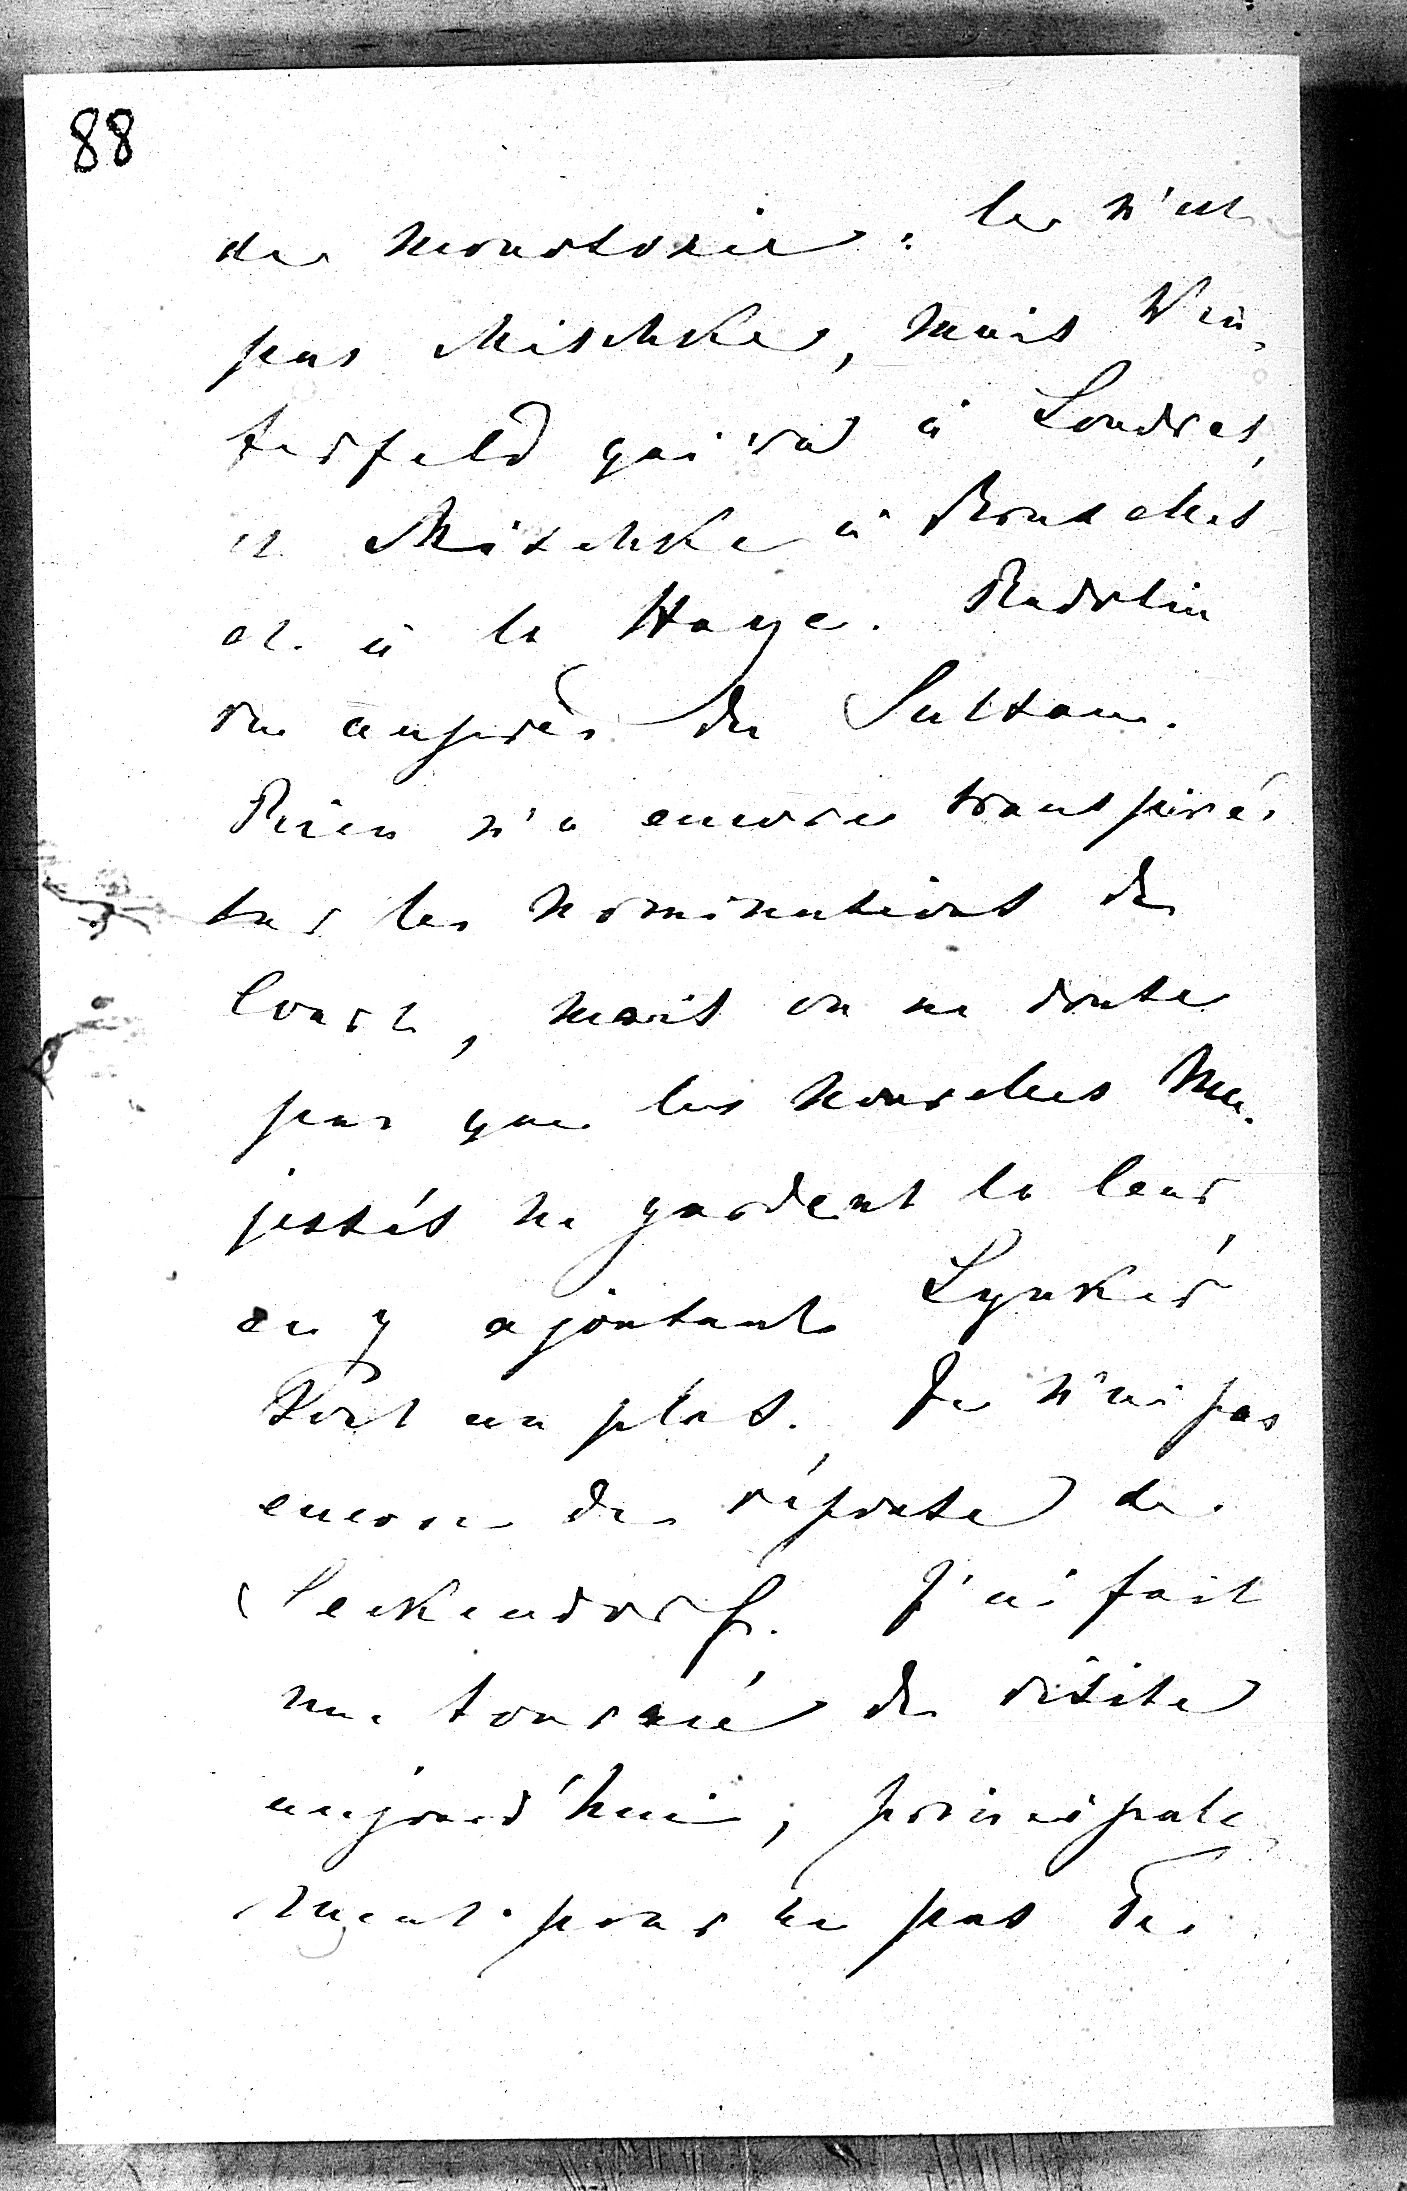 88
de monotonie. Ce n'est
pas Mischke, mais Win-
terfeld qui va à Londres,
et Mischke à Bruxelles
et à la Haye. Radolin
va auprès du Sultan.
Rien n'a encore transpiré
sur les nominations de
Cour, mais on ne doute
pas que les nouvelles Ma-
jestés ne gardent la leur,
en y ajoutant Lynker
tout au plus. Je n'ai pas
encore de réponse de
Seckendorff. J'ai fait
une tournée de visite
aujourd'hui, principale
ment pour ne pas